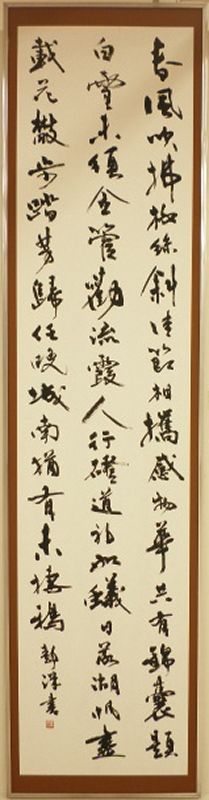 春風吹拂柳絲斜佳節相攜感物華共有錦囊題
白雪未須金管勸流霞人行磴道初如蟻日落湖帆盡
載花散步踏芳歸任晚城南猶有未棲鴉 書